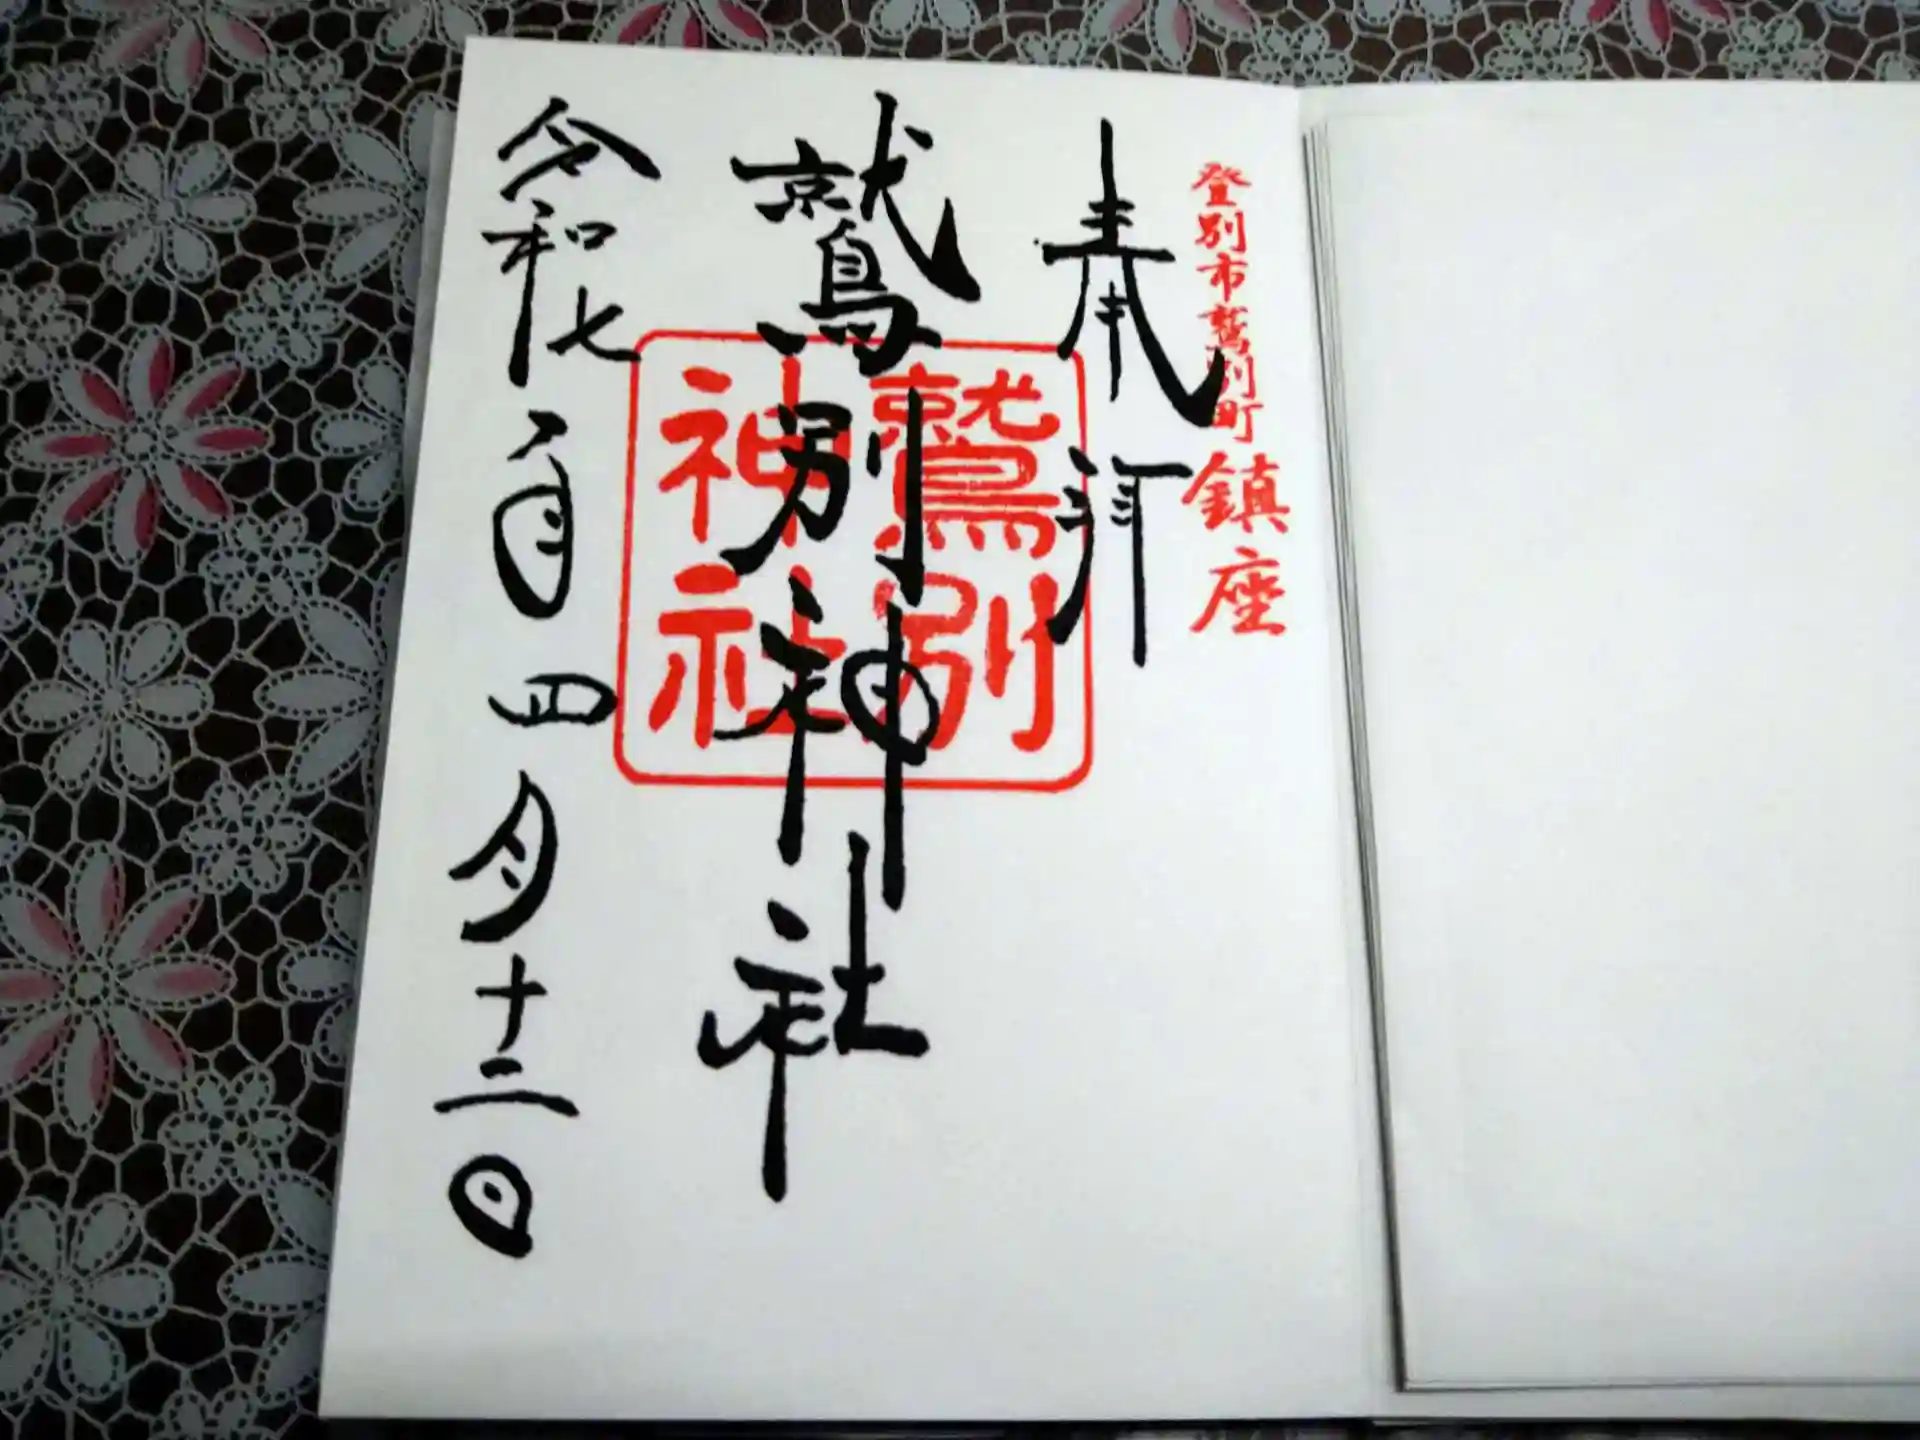 登別市鷲別町鎮座
奉拝
鷲別神社
鷲別
神社
令和七百四月十二日